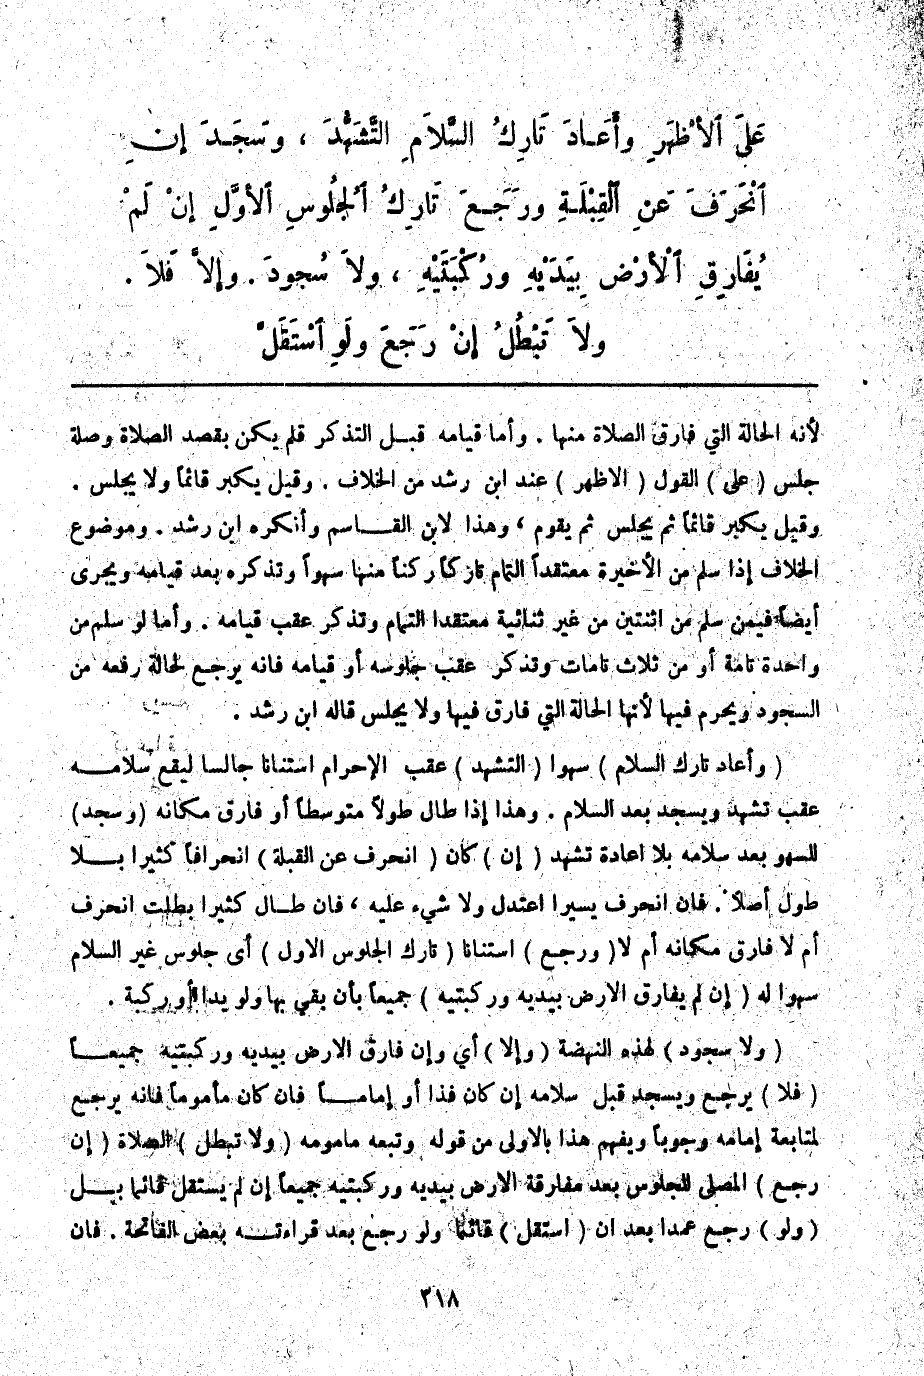 عَلَى ٱلْأَظْهَرِ وأَعَادَ تَارِكُ السَّلاَمِ التَّشَهُّدَ ، وسَجَدَ إِنِ
ٱنْحَرَفَ عَنِ ٱلْقِبْلَةِ ورَجَعَ تَارِكُ ٱلْجُلُوسِ ٱلْأَوَّلِ إِنْ لَمْ
يُفَارِقِ ٱلْأَرْض بِيَدَيْهِ ورُكْبَتَيْهِ ، ولاَ سُجودَ . وإِلاَّ فَلاَ .
ولاَ تَبْطُلُ إِنْ رَجَعَ ولَوِ ٱسْتَقَلَّ
لأنه الحالة التي فارق الصلاة منها . وأما قيامه قبل التذكر فلم يكن بقصد الصلاة وصلة
جلس ( على ) القول ( الاظهر ) عند ابن رشد من الخلاف . وقيل يكبر قائماً ولا يجلس .
وقيل يكبر قائماً ثم يجلس ثم يقوم ، وهذا لابن القاسم وأنكره ابن رشد . وموضوع
الخلاف إذا سلم من الأخيرة معتقداً التمام تاركاً ركناً منها سهواً وتذكره بعد قيامه ويجرى
أيضاً فيمن سلم من اثنتين من غير ثنائية معتقدا التمام وتذكر عقب قيامه . وأما لو سلم من
واحدة تامة أو من ثلاث تامات وتذكر عقب جلوسه أو قيامه فانه يرجع لحالة رفعه من
السجود ويحرم فيها لأنها الحالة التي فارق فيها ولا يجلس قاله ابن رشد .
( وأعاد تارك السلام ) سهوا ( التشهد ) عقب الإحرام استنانا جالسا ليقع سلامه
عقب تشهد ويسجد بعد السلام . وهذا إذا طال طولاً متوسطاً أو فارق مكانه (وسجد)
للسهو بعد سلامه بلا اعادة تشهد ( إن ) كان ( انحرف عن القبلة ) انحرافاً كثيرا بلا
طول أصلاً . فان انحرف يسيرا اعتدل ولا شيء عليه ، فان طال كثيرا بطلت انحرف
أم لا فارق مكانه أم لا ( ورجع ) استنانا ( تارك الجلوس الاول ) أى جلوس غير السلام
سهوا له ( إن لم يفارق الارض بيديه وركبتيه ) جميعاً بأن بقي بها ولو يدا أو ركبة .
( ولا سجود ) لهذه النهضة ( وإلا ) أي وإن فارق الارض بيديه وركبتيه جميعاً
( فلا ) يرجع ويسجد قبل سلامه إن كان فذا أو إماماً فان كان مأموماً فانه يرجع
لمتابعة إمامه وجوباً ويفهم هذا بالاولى من قوله وتبعه مامومه ( ولا تبطل ) الصلاة ( إن
رجع ) المصلى للجلوس بعد مفارقة الارض بيديه وركبتيه جميعاً إن لم يستقل قائما بل
( ولو ) رجع عمدا بعد ان ( استقل ) قائما ولو رجع بعد قراءته بعض الفاتحة . فان
٣١٨